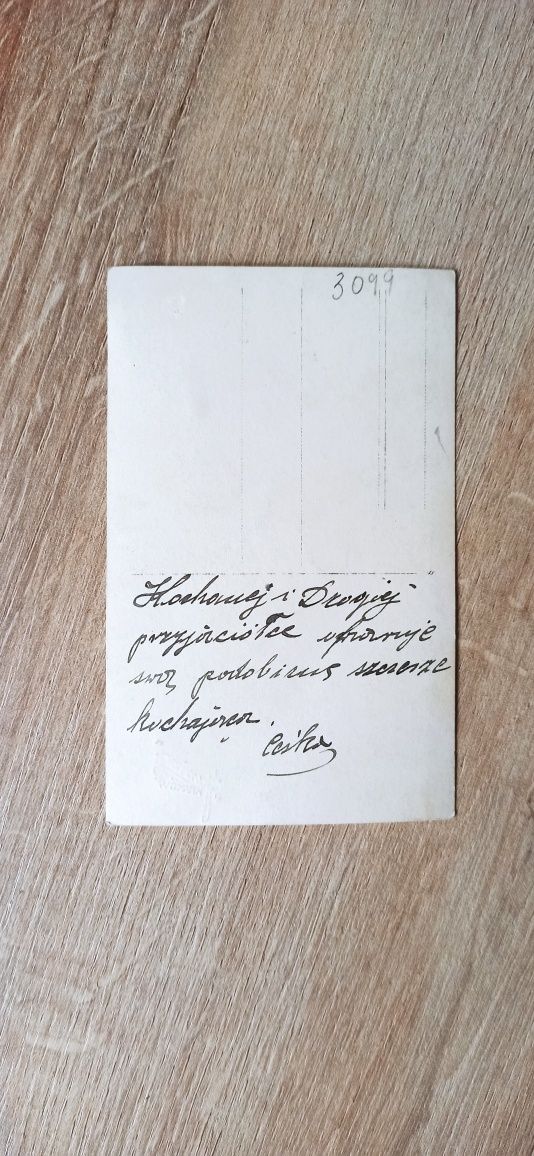 3099
Kochanej i Drogiej
przyjaciółce ofiaruje
swą podobiznę szczerze
kochająca.
Ceśka